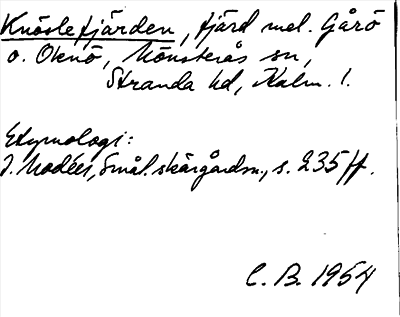 Knöslefjärden, fjärd mel. Gårö
o. Oknö, Mönsterås sn,
Stranda hd, Kalm. l.
Etymologi:
I. Modéer, Smål. skärgårdsn., s. 235 ff.
C. B. 1954